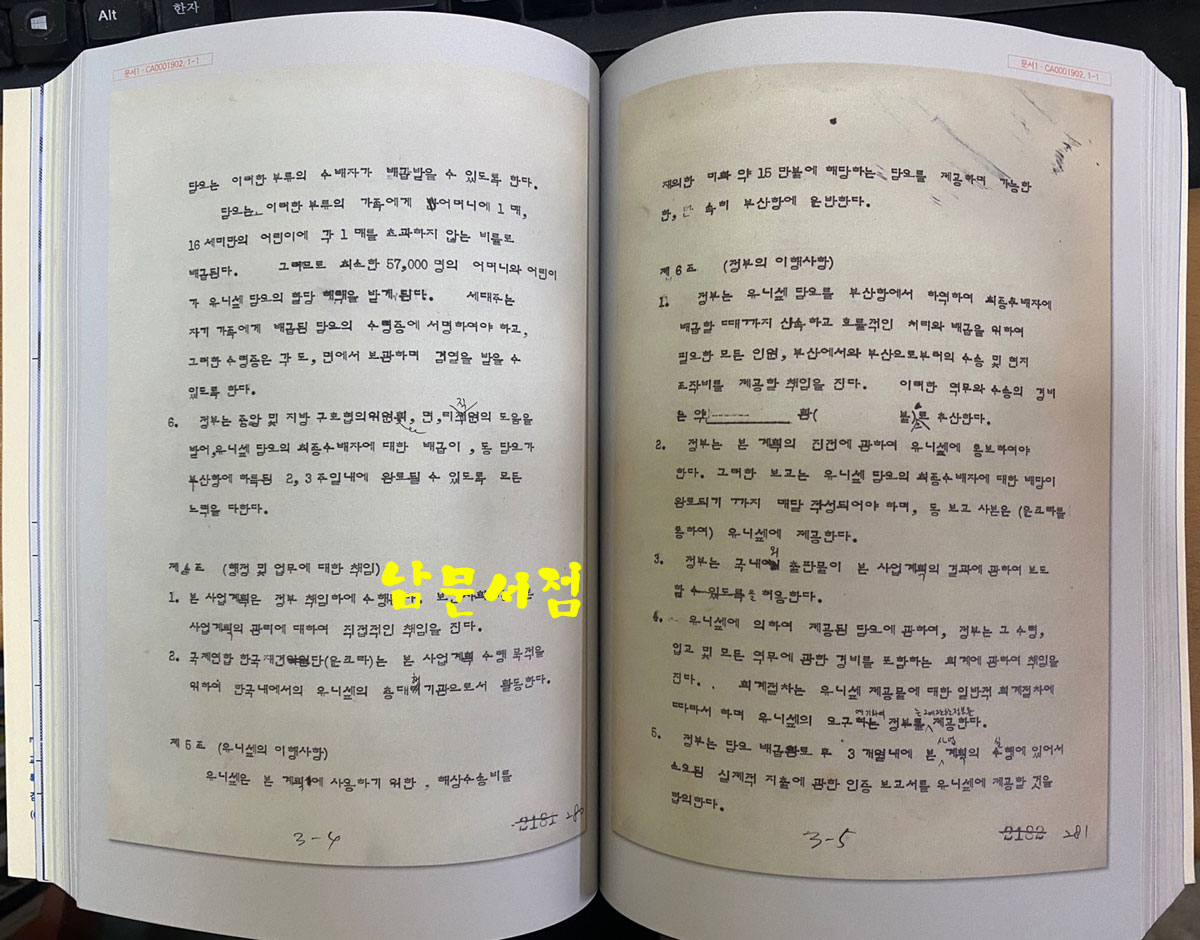 Alt
한자
문서1 · CA0001902, 1-1
담요는 이러한 부류의 수배자가 배급받을 수 있도록 한다.
담요는 이러한 부류의 가족에게 어머니에 1 매,
16 세미만의 어린이에 각 1 매를 초과하지 않는 비률로
배급된다. 그러므로 최소한 57,000 명의 어머니와 어린이
가 유니셒 담요의 할당 혜택을 받게 된다. 세대주는
자기 가족에게 배급된 담요의 수령증에 서명하여야 하고,
그러한 수령증은 각 도, 면에서 보관하며 검열을 받을 수
있도록 한다.
6. 정부는 중앙 및 지방 구호협의위원회, 면, 리직원의 도움을
받어, 유니셒 담요의 최종수배자에 대한 배급이, 동 담요가
부산항에 하륙된 2, 3 주일내에 완료될 수 있도록 모든
노력을 다한다.
제 4 조 (행정 및 업무에 대한 책임)
1. 본 사업계획은 정부 책임하에 수행
남문서점
사업계획의 관리에 대하여 직접적인 책임을 진다.
2. 국제연합 한국재건단(운크라)는 본 사업계획 수행 목적을
위하여 한국내에서의 유니셒의 총대행기관으로서 활동한다.
제 5 조 (유니셒의 이행사항)
유니셒은 본 계획에 사용하기 위한, 해상수송비를
3-4
2181 280
문서1 · CA0001902, 1-1
제외한 미화 약 15 만불에 해당하는 담요를 제공하며 가능한
한, 속히 부산항에 운반한다.
제 6 조 (정부의 이행사항)
1. 정부는 유니셒 담요를 부산항에서 하역하여 최종수배자에
배급할 때까지 신속하고 효률적인 처리와 배급을 위하여
필요한 모든 인원, 부산에서와 부산으로부터의 수송 및 현지
조작비를 제공할 책임을 진다. 이러한 역무와 수송의 경비
는 약 환( 불)로 추산한다.
2. 정부는 본 계획의 진전에 관하여 유니셒에 통보하여야
한다. 그러한 보고는 유니셒 담요의 최종수배자에 대한 배당이
완료되기 까지 매달 작성되어야 하며, 동 보고 사본은 (운크라를
통하여) 유니셒에 제공한다.
3. 정부는 국내외 출판물이 본 사업계획의 결과에 관하여 보도
할 수 있도록을 허용한다.
4. 유니셒에 의하여 제공된 담요에 관하여, 정부는 그 수령,
입고 및 모든 역무에 관한 경비를 포함하는 회계에 관하여 책임을
진다. 회계절차는 유니셒 제공물에 대한 일반적 회계절차에
따라서 하며 유니셒의 요구하는 정부를 제공한다.
5. 정부는 담요 배급완료 후 3 개월내에 본 사업계획의 실행에 있어서
소요된 실제적 지출에 관한 인증 보고서를 유니셒에 제공할 것을
합의한다.
3-5
2182 281